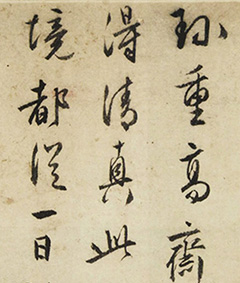 珎重高齋
得清真此
境都從一日